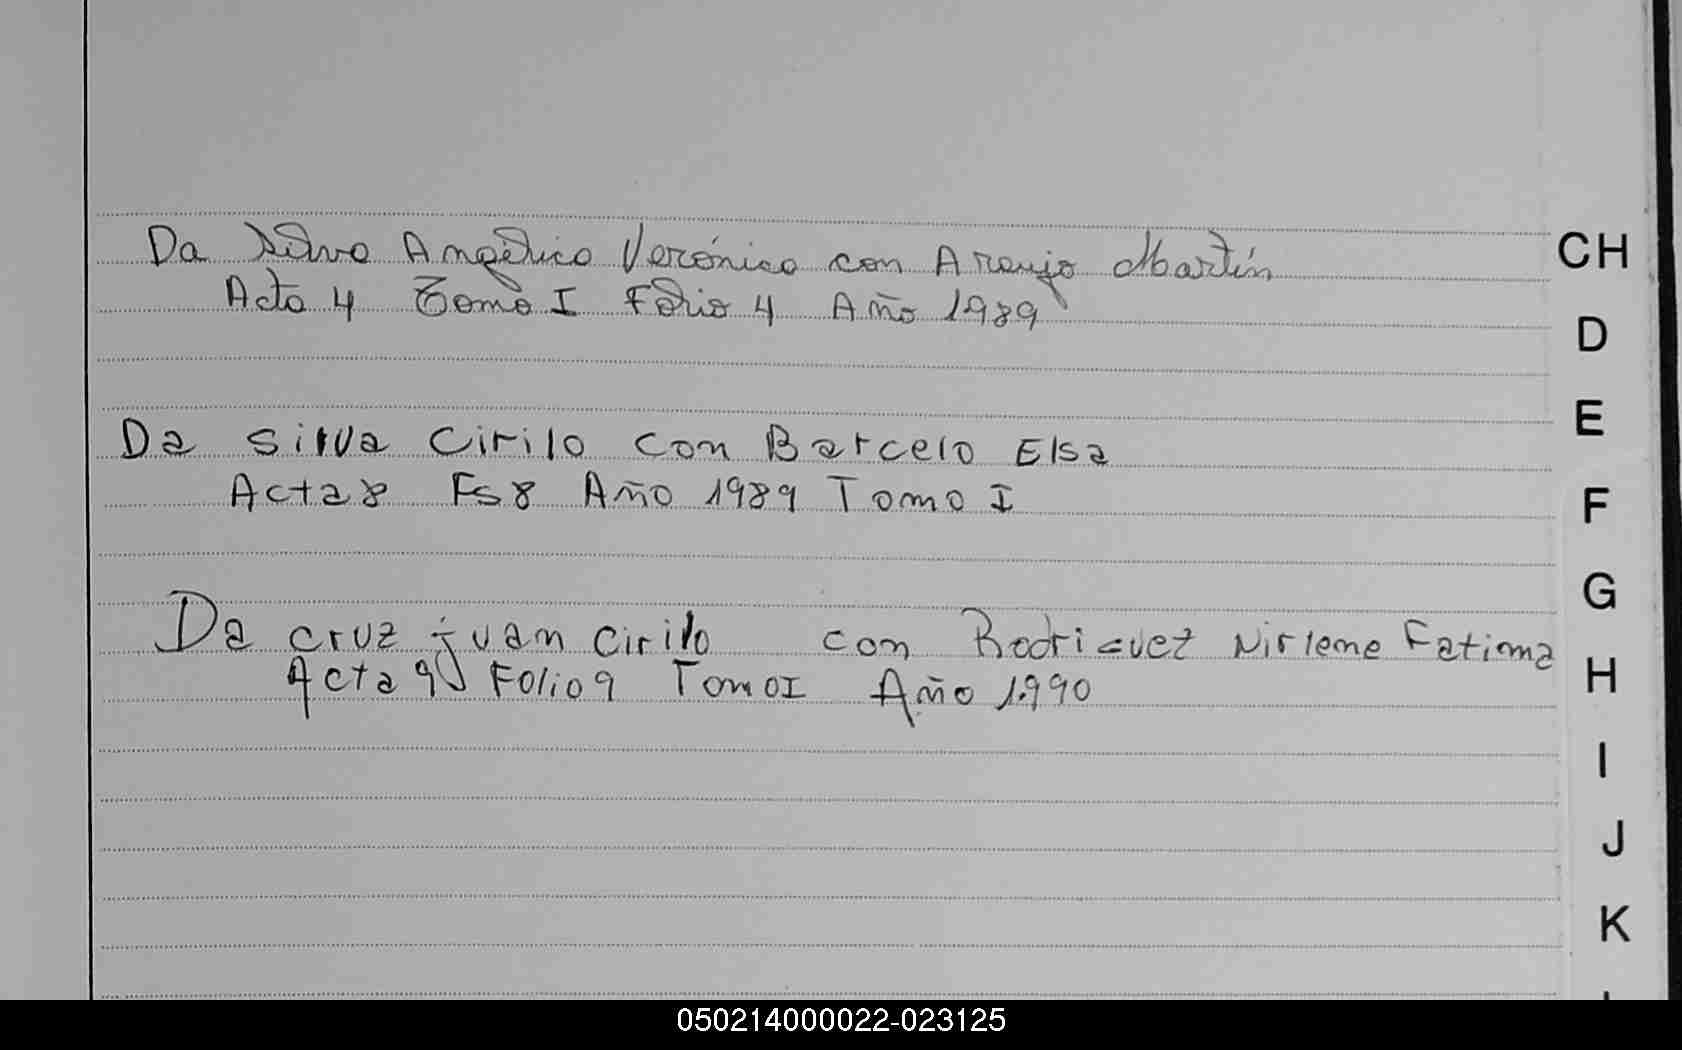 Da Silva Angélica Verónica con Araujo Martín
Acta 4 Tomo I Folio 4 Año 1989
Da silva Cirilo con Barcelo Elsa
Acta 8 Fs 8 Año 1989 Tomo I
Da cruz juan Cirilo con Rodriguez Nirleme Fatima
Acta 9 Folio 9 Tomo I Año 1.990
CH
D
E
F
G
H
I
J
K
050214000022-023125